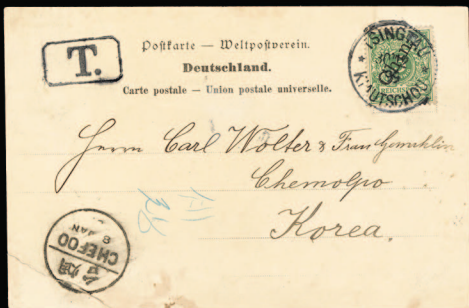 T.
Postkarte — Weltpostverein.
Deutschland.
Carte postale — Union postale universelle.
TSINGTAU
KIAUTSCHOU
REICHS
Herrn Carl Wolter & Frau Gemahlin
Chemolpo
Korea.
CHEFOO
8 JAN